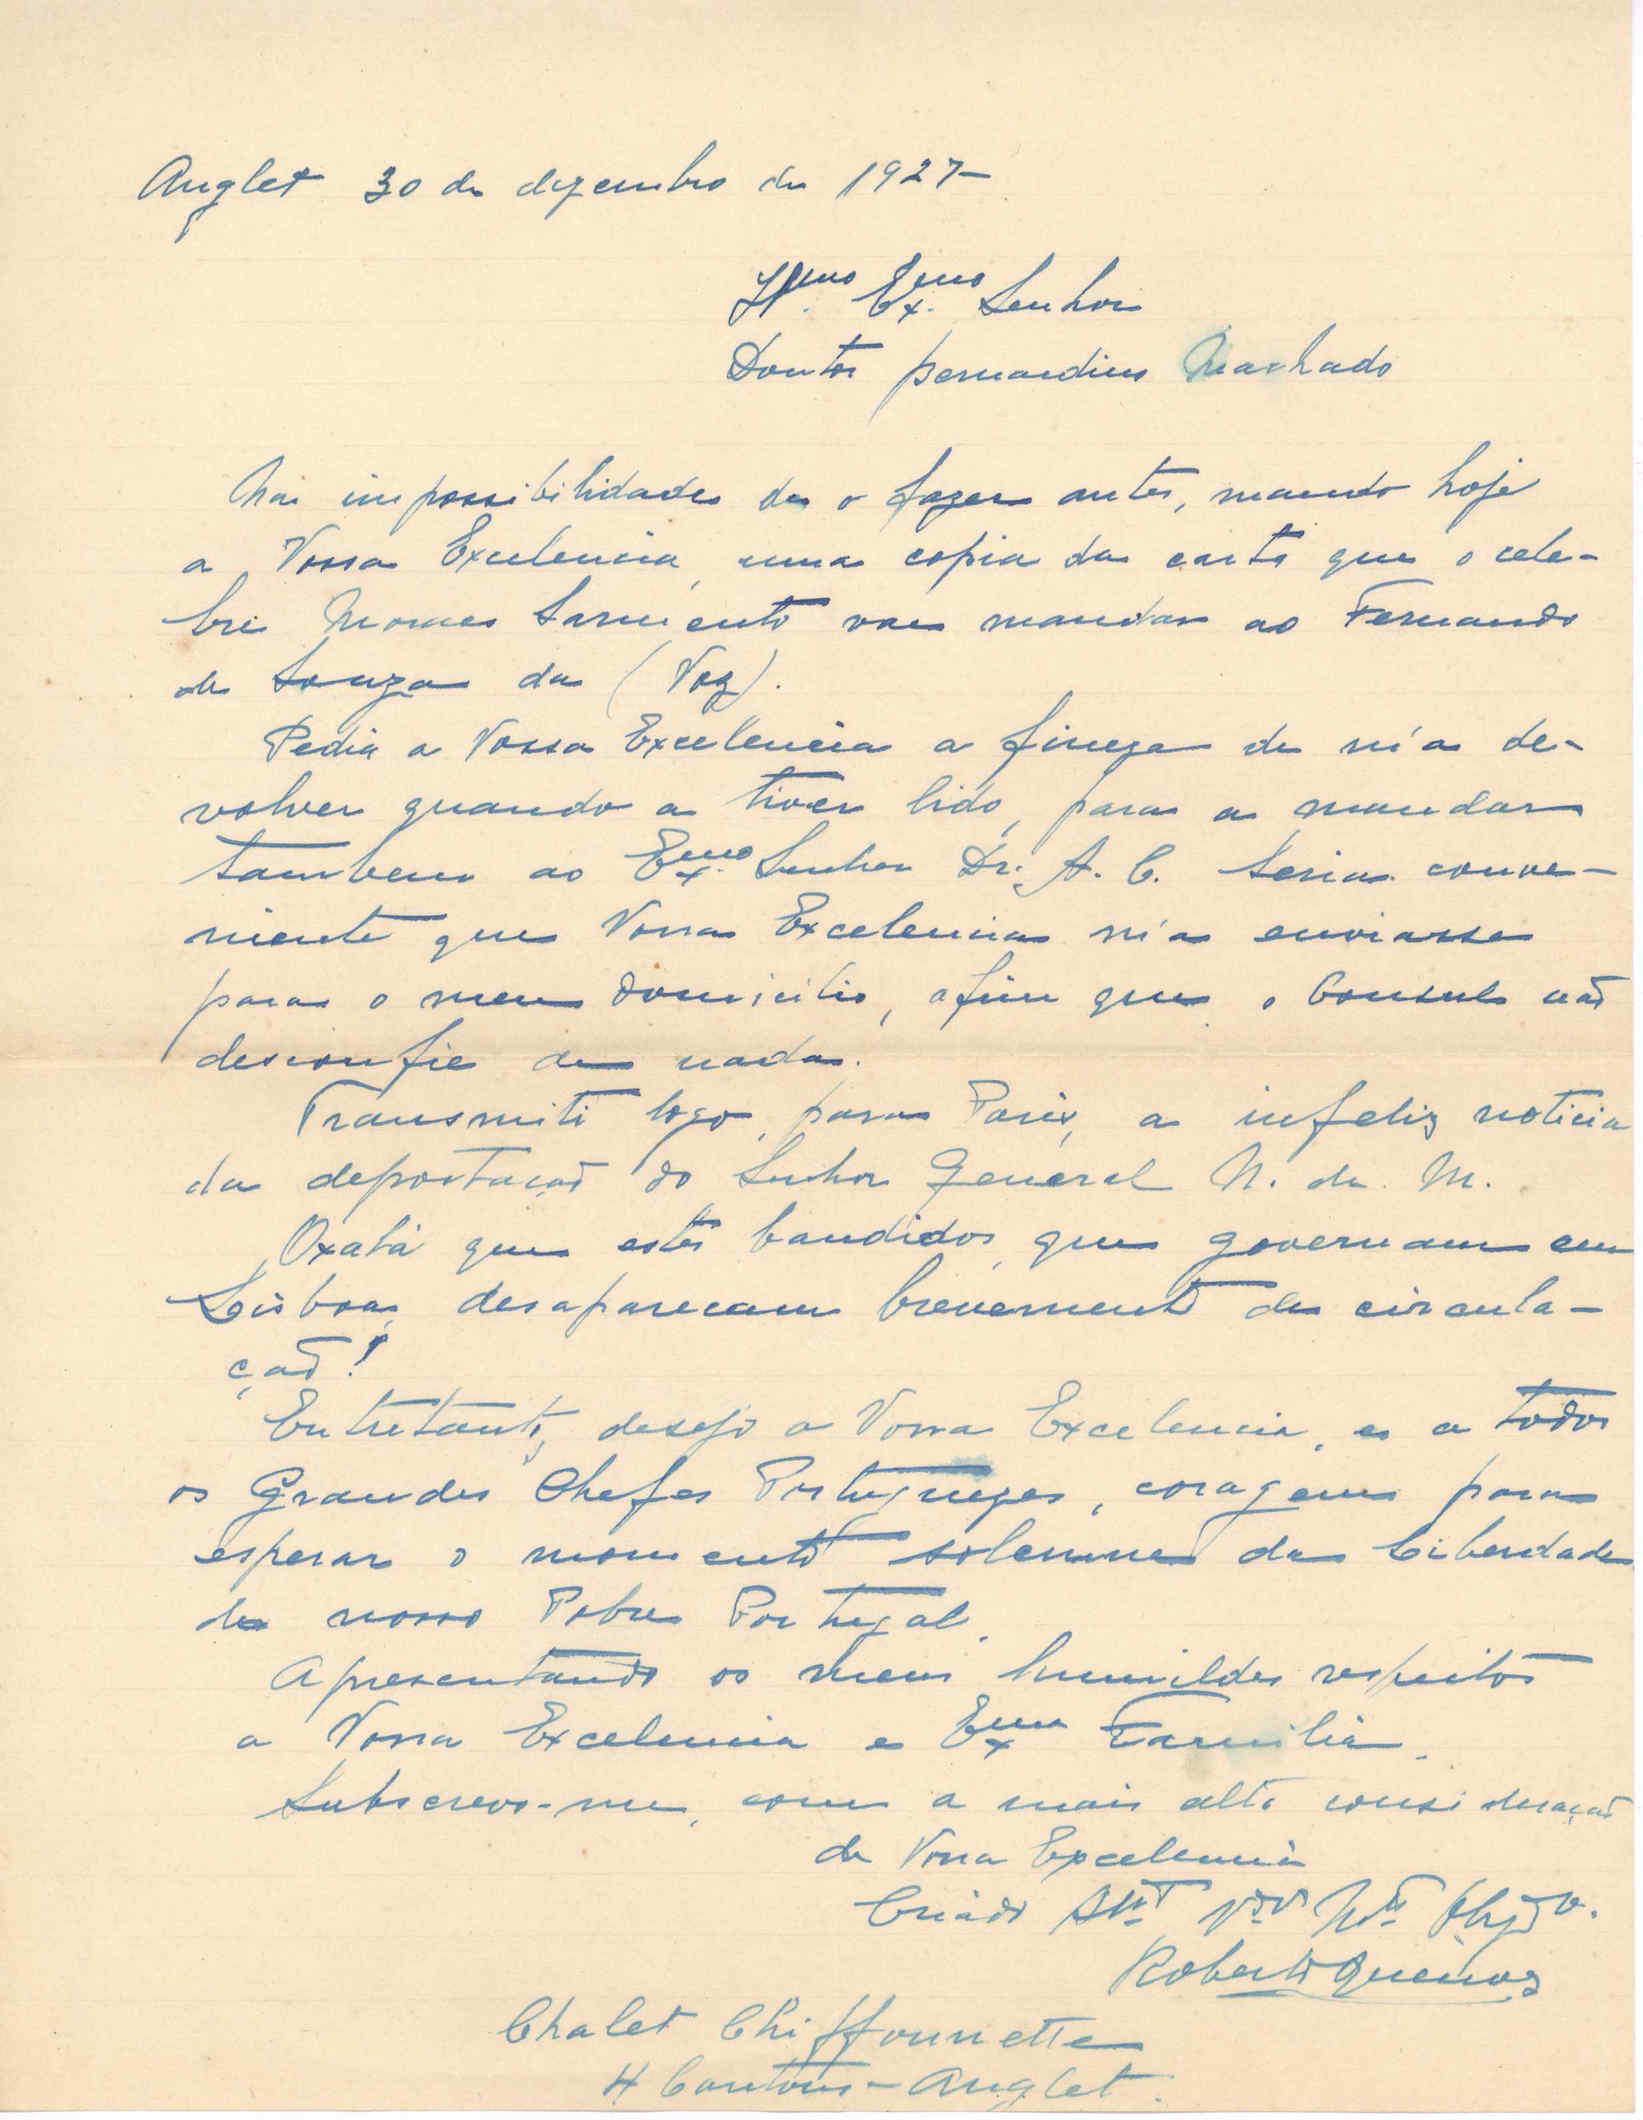 Anglet 30 de dezembro de 1927-
Il.mo Ex.mo Senhor
Doutor Bernardino Machado
Na impossibilidade de o fazer antes, mando hoje
a Vossa Excelencia, uma copia da carta que o cele-
bre Moraes Sarmento vae mandar ao Fernando
de Souza da (Voz).
Pedia a Vossa Excelencia a fineza de m'a de-
volver quando a tiver lido, para a mandar
tambem ao Ex.mo Senhor Dr. A. C. Seria conve-
niente que Vossa Excelencia m'a enviasse
para o meu domicilio, afim que o Consul não
desconfie de nada.
Transmiti logo para Paris, a infeliz noticia
da deportação do Senhor General N. de M.
Oxalá que estes bandidos que governam em
Lisboa, desaparecam brevemente de circula-
ção!
Entretanto, desejo a Vossa Excelencia, e a todos
os Grandes Chefes Portuguezes, coragem para
esperar o momento solemne da Liberdade
do nosso Pobre Portugal.
Apresentando os meus humildes respeitos
a Vossa Excelencia e Ex.ma Familia.
Subscrevo-me, com a mais alta consideração
de Vossa Excelencia
Criado
Roberto
Chalet Chiffonnette
4 Cantons - Anglet.